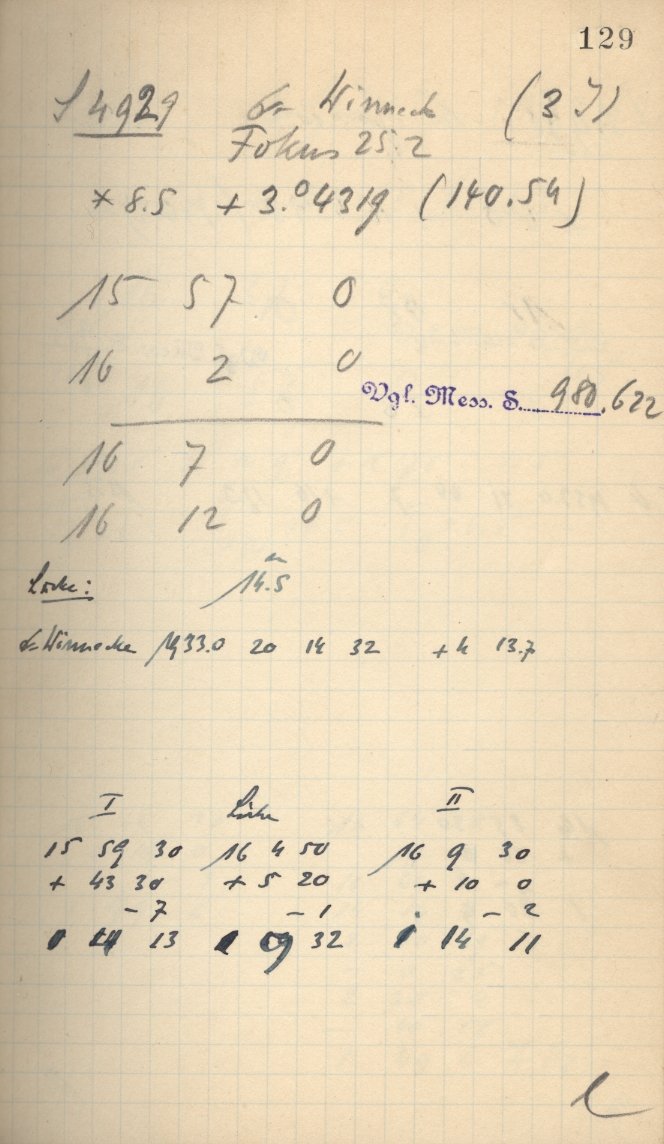 129
S 4929 Winnecke (3 J)
Fokus 25.2
* 8.5 + 3.°4319 (140.54)
15 57 0
16 2 0
Vgl. Mess. S. 980, 622
16 7 0
16 12 0
14.5
Winnecke 1933.0 20 14 32 + 4 13.7
I II
15 59 30 16 4 50 16 9 30
+ 43 30 + 5 20 + 10 0
- 7 - 1 - 2
13 32 14 11